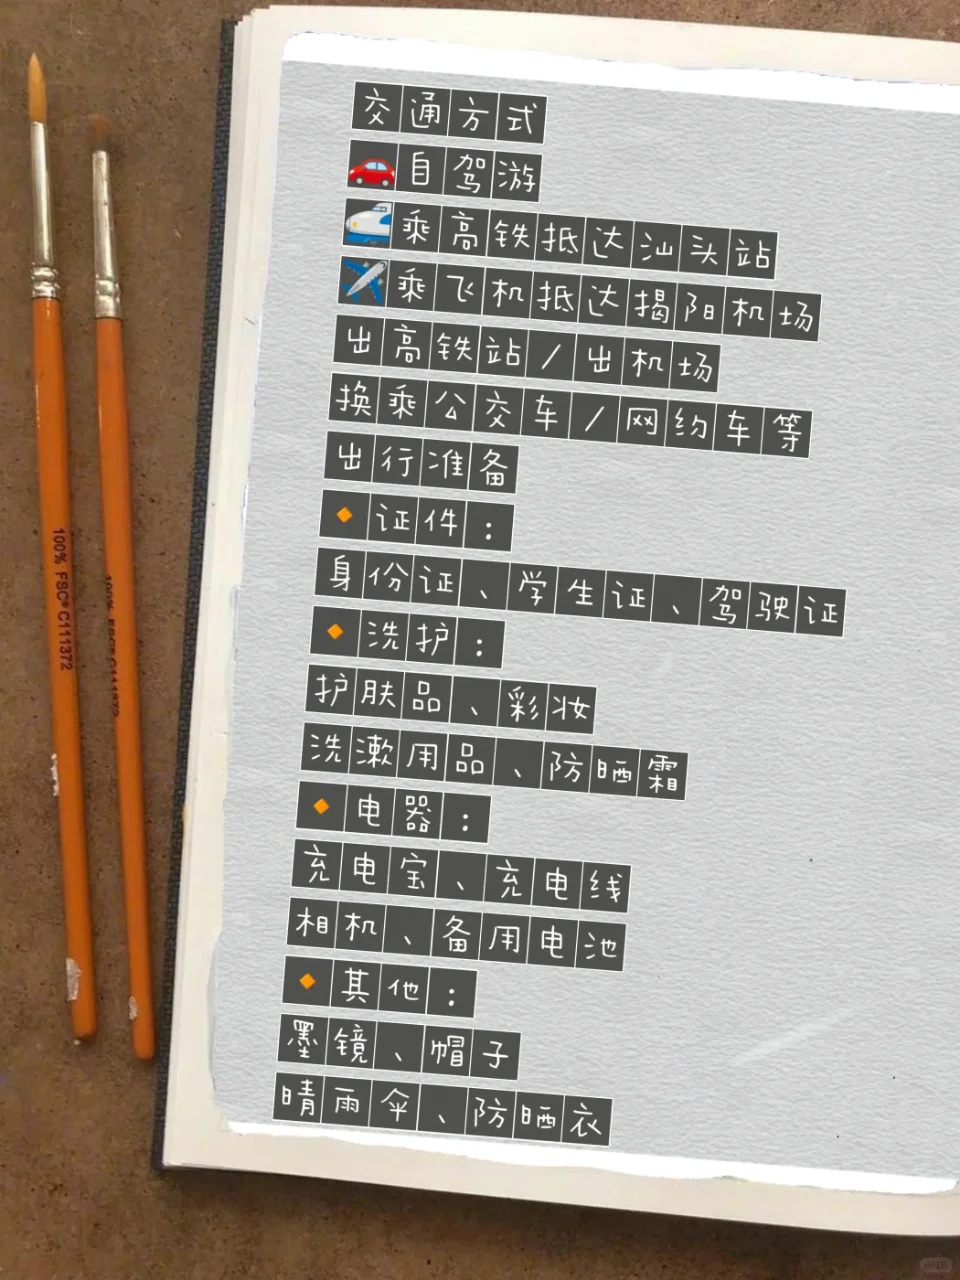 交通方式
🚗自驾游
🚅乘高铁抵达汕头站
✈️乘飞机抵达揭阳机场
出高铁站/出机场
换乘公交车/网约车等
出行准备
🔸证件：
身份证、学生证、驾驶证
🔸洗护：
护肤品、彩妆
洗漱用品、防晒霜
🔸电器：
充电宝、充电线
相机、备用电池
🔸其他：
墨镜、帽子
晴雨伞、防晒衣
100% FSC® C111372
100% FSC® C111372
小红书